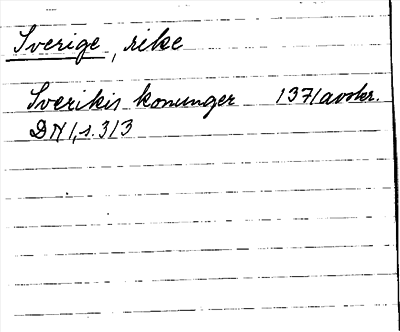 Sverige, rike
Sverikis konunger 1371 avskr.
DN 1, s. 313